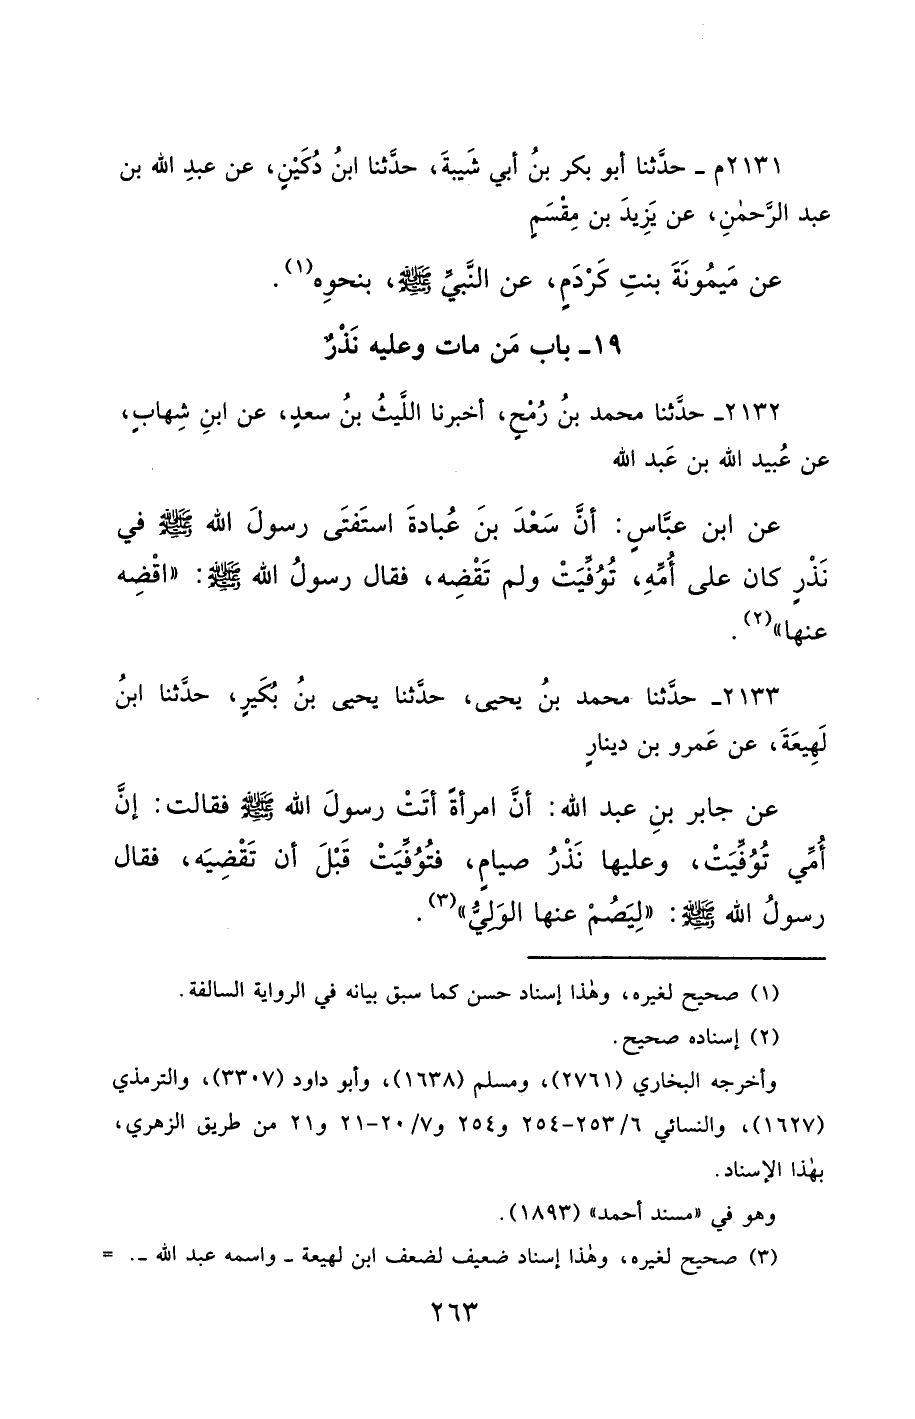 ٢١٣١م - حدَّثنا أبو بكر بنُ أبي شَيبةَ، حدَّثنا ابنُ دُكَيْنٍ، عن عبدِ الله بن
عبد الرَّحمٰنِ، عن يَزِيدَ بن مِقْسَمٍ
عن مَيمُونَةَ بنتِ كَرْدَمٍ، عن النَّبيِّ ﷺ، بنحوِه(١).
١٩- باب مَن مات وعليه نَذْرٌ
٢١٣٢- حدَّثنا محمد بنُ رُمْحٍ، أخبرنا اللَّيثُ بنُ سعدٍ، عن ابنِ شِهابٍ،
عن عُبيد الله بن عَبد الله
عن ابن عبَّاسٍ: أنَّ سَعْدَ بنَ عُبادةَ استَفتَى رسولَ الله ﷺ في
نَذْرٍ كان على أُمِّهِ، تُوُفِّيَتْ ولم تَقْضِه، فقال رسولُ الله ﷺ: «اقْضِه
عنها»(٢).
٢١٣٣- حدَّثنا محمد بنُ يحيى، حدَّثنا يحيى بنُ بُكَيرٍ، حدَّثنا ابنُ
لَهِيعَةَ، عن عَمرو بن دينارٍ
عن جابر بنِ عبد الله: أنَّ امرأةً أتَتْ رسولَ الله ﷺ فقالت: إنَّ
أُمِّي تُوُفِّيَتْ، وعليها نَذْرُ صيامٍ، فتُوُفِّيَتْ قَبْلَ أن تَقْضِيَه، فقال
رسولُ الله ﷺ: «لِيَصُمْ عنها الوَلِيُّ»(٣).
(١) صحيح لغيره، وهٰذا إسناد حسن كما سبق بيانه في الرواية السالفة.
(٢) إسناده صحيح.
وأخرجه البخاري (٢٧٦١)، ومسلم (١٦٣٨)، وأبو داود (٣٣٠٧)، والترمذي
(١٦٢٧)، والنسائي ٦/ ٢٥٣-٢٥٤ و٢٥٤ و٧/ ٢٠-٢١ و٢١ من طريق الزهري،
بهٰذا الإسناد.
وهو في «مسند أحمد» (١٨٩٣).
(٣) صحيح لغيره، وهٰذا إسناد ضعيف لضعف ابن لهيعة - واسمه عبد الله -. =
٢٦٣